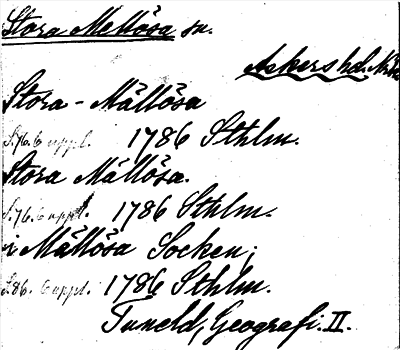 Stora Mellösa sn.
Askers hd. När
Stora-Mällösa
S.76. 6 uppl. 1786 Sthlm.
Stora Mällösa.
S.76. 6 uppl. 1786 Sthlm.
i Mällösa Socken;
S.86. 6 uppl. 1786 Sthlm.
Tuneld, Geografi. II.